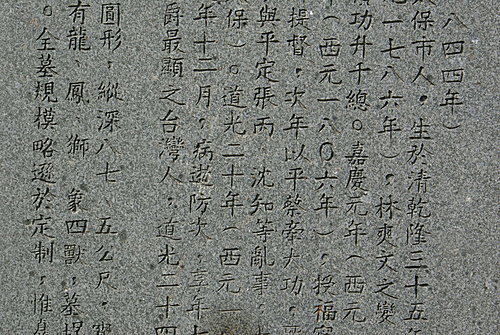 八四四年）
保市人，生於清乾隆三十五
一七八六年），林爽文之變
功升千總。嘉慶元年（西元
年（西元一八０六年），授福
提督，次年以平蔡牽大功，
與平定張丙、沈知等亂事，
保）。道光二十年（西元一
年十二月，病逝防次，享年七
爵最顯之台灣人，道光二十四
圓形，縱深八七．五公尺，
有龍、鳳、獅、象四獸，墓埕
。全墓規模略遜於定制，惟